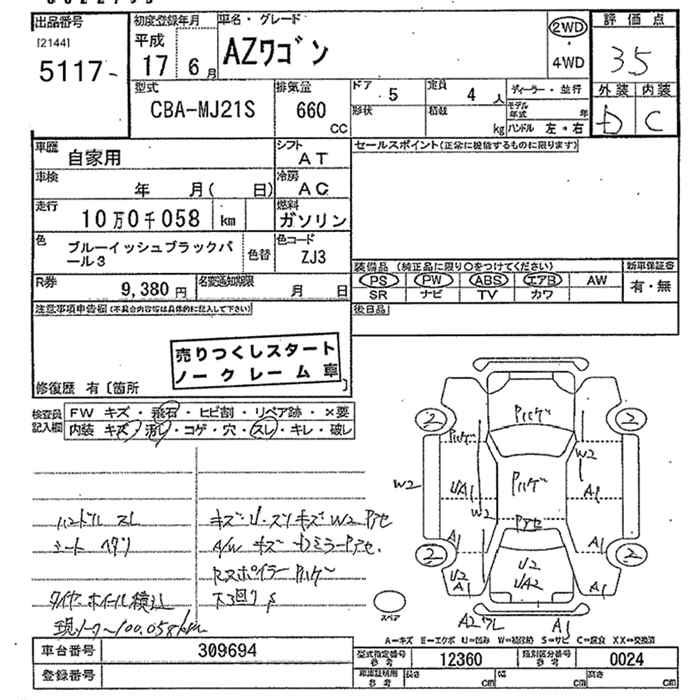 出品番号
[2144]
5117
初度登録年月
平成
17 6月
車名・グレード
AZワゴン
2WD
・
4WD
評価点
35
外装 内装
D C
型式
CBA-MJ21S
排気量
660
CC
ドア 5
定員 4 人
形状
積載 kg
ディーラー・並行
モデル
年式 年
ハンドル 左・右
車歴 自家用
シフト AT
車検 年 月( 日)
冷房 AC
走行 10万0千058 km
燃料 ガソリン
色 ブルーイッシュブラックパ
ール3
色替
色コード
ZJ3
R券 9,380円
名変通知期限
月 日
セールスポイント(正常に機能するものに限ります)
装備品(純正品に限り○をつけてください)
PS PW ABS エアB AW
SR ナビ TV カワ
新車保証書
有・無
後日品
注意事項申告欄(不具合内容等は具体的に記入して下さい)
売りつくしスタート
ノークレーム車
修復歴 有〔箇所 〕
検査員
記入欄
FW キズ・飛石・ヒビ割・リペア跡・×要
内装 キズ・汚れ・コゲ・穴・スレ・キレ・破レ
ハンドル スレ
シート ヘタリ
タイヤ・ホイール積込
現メーター100,058km
キズ・U・スリキズ W2 Pアセ
A/W キズ ドミラーPアセ.
Rスポイラー Pハゲ
下回りS
Pハゲ
Pハゲ
Pハゲ
Pアセ
2 2
2 2
W2
W2
W2
UA1
A1
A1
A1
U2
A1
A1
U2
UA2
A2ワレ
A1
スペア
A=キズ E=エクボ U=凹み W=補修跡 S=サビ C=腐食 XX=交換済
車台番号 309694
登録番号
型式指定番号
参考
12360
類別区分番号
参考
0024
車庫証明用
参考
長さ cm
幅 cm
高さ cm